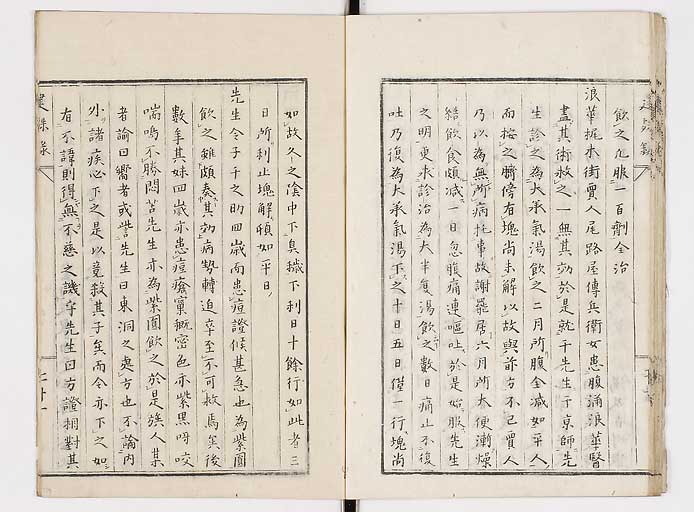 飲之凡服一百劑全治
浪華梶木街賈人尾路屋傳兵衛女患腹滿浪華醫
盡其術救之一無其効於是就于先生于京師先
生診之為大承氣湯飲之二月所腹全減如平人
而按之臍傍有塊尚未解以故與前方不已賈人
乃以為無所病托事故謝罷居六月所大便漸燥
結飲食頗減一日忽腹痛連嘔吐於是始服先生
之明更来診治為大半夏湯飲之數日痛止不復
吐乃復為大承氣湯下之十日五日僅一行塊尚
如故久之陰中下臭穢下利日十餘行如此者三
日所利止塊解頓如平日
先生令子千之助四歲而患痘證候甚急也為紫圓
飲之雖頗奏其効病勢轉迫卒至不可救焉矣後
數年其妹四歲亦患痘瘡窠概密色亦紫黑呀咬
喘鳴不勝悶苦先生亦為紫圓飲之於是族人某
者諭曰嚮者或告先生曰東洞之處方也不論内
外諸疾必下之是以竟殺其子矣而今亦下之如
有不諱則得無不慈之譏乎先生曰方證相對其
建殊录
二十一